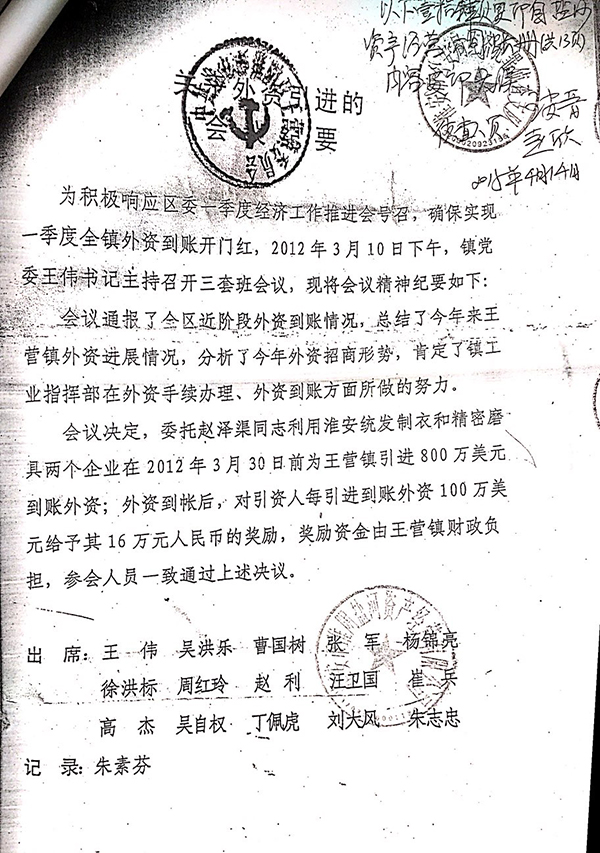 资产经营
2015年4月14日
关 外资引进的
会 要
为积极响应区委一季度经济工作推进会号召，确保实现
一季度全镇外资到账开门红，2012年3月10日下午，镇党
委王伟书记主持召开三套班会议，现将会议精神纪要如下：
会议通报了全区近阶段外资到账情况，总结了今年来王
营镇外资进展情况，分析了今年外资招商形势，肯定了镇工
业指挥部在外资手续办理、外资到账方面所做的努力。
会议决定，委托赵泽渠同志利用淮安统发制衣和精密磨
具两个企业在2012年3月30日前为王营镇引进800万美元
到账外资；外资到帐后，对引资人每引进到账外资100万美
元给予其16万元人民币的奖励，奖励资金由王营镇财政负
担，参会人员一致通过上述决议。
出 席：王 伟 吴洪乐 曹国树 张 军 杨锦亮
徐洪标 周红玲 赵 利 汪卫国 崔 兵
高 杰 吴自权 丁佩虎 刘大风 朱志忠
记 录：朱素芬